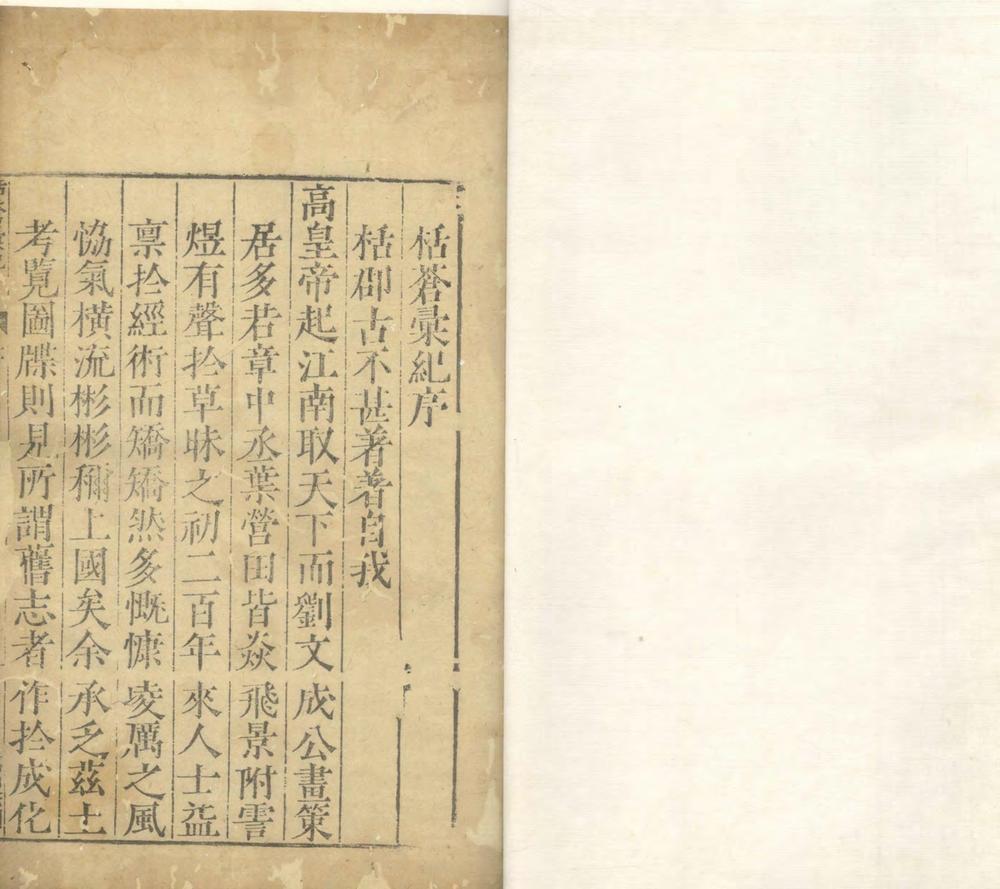 栝蒼彚紀序
栝郡古不甚著著自我
高皇帝起江南取天下而劉文成公畫策
居多若章中丞葉營田皆焱飛景附霅
煜有聲扵草昧之初二百年來人士益
禀扵經術而矯矯然多慨慷凌厲之風
恊氣橫流彬彬稱上國矣余承乏茲土
考覽圖牒則見所謂舊志者作扵成化